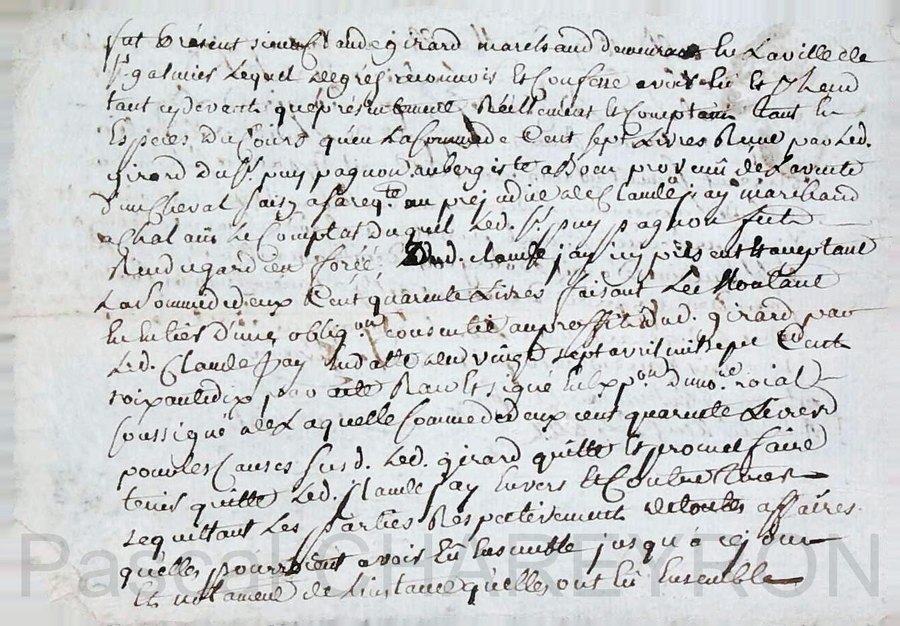 fut présent sieur Claude girard marchand demeurant En La ville de
St galmier Lequel de gres reconnois Et Confesse avoir Eû Et Receu
tant cy devant que présentement Réellement Et Comptant tant En
Espèces Du Cours qu'en La Somme de Cent sept Livres Remise par Led.
girard du Sr puy pagnon aubergiste a Boen provenû de La vente
d'un Cheval saisy a sa reqte au prejudice de Claude jay marchand
a Chalain Le Comptal duquel Led. Sr puy pagnon fut
Rendu gardien forcé, Dud. Claude jay icy présent Et acceptant
La Somme de deux Cent quarente Livres faisant Le Montant
En Entier d'une obligon consentie au proffit dud. girard par
Led. Claude Jay Sud datte du vingt sept avril mil sept Cent
soixante dix par acte Receu Et signé Expon du nore roial
soussigné de Laquelle Somme de deux cent quarente Livres
pour les Causes susd. Led. girard quitte Et promet faire
tenir quitte Led. Claude Jay Envers Et Contre tous
se quittant Les parties Respectivement de toutes affaires
qu'elles pourroient avoir Eû Ensemble jusqu'à ce jour
Et notament de L'instance qu'elles ont Eû Ensemble
Pascal CHAREYRON